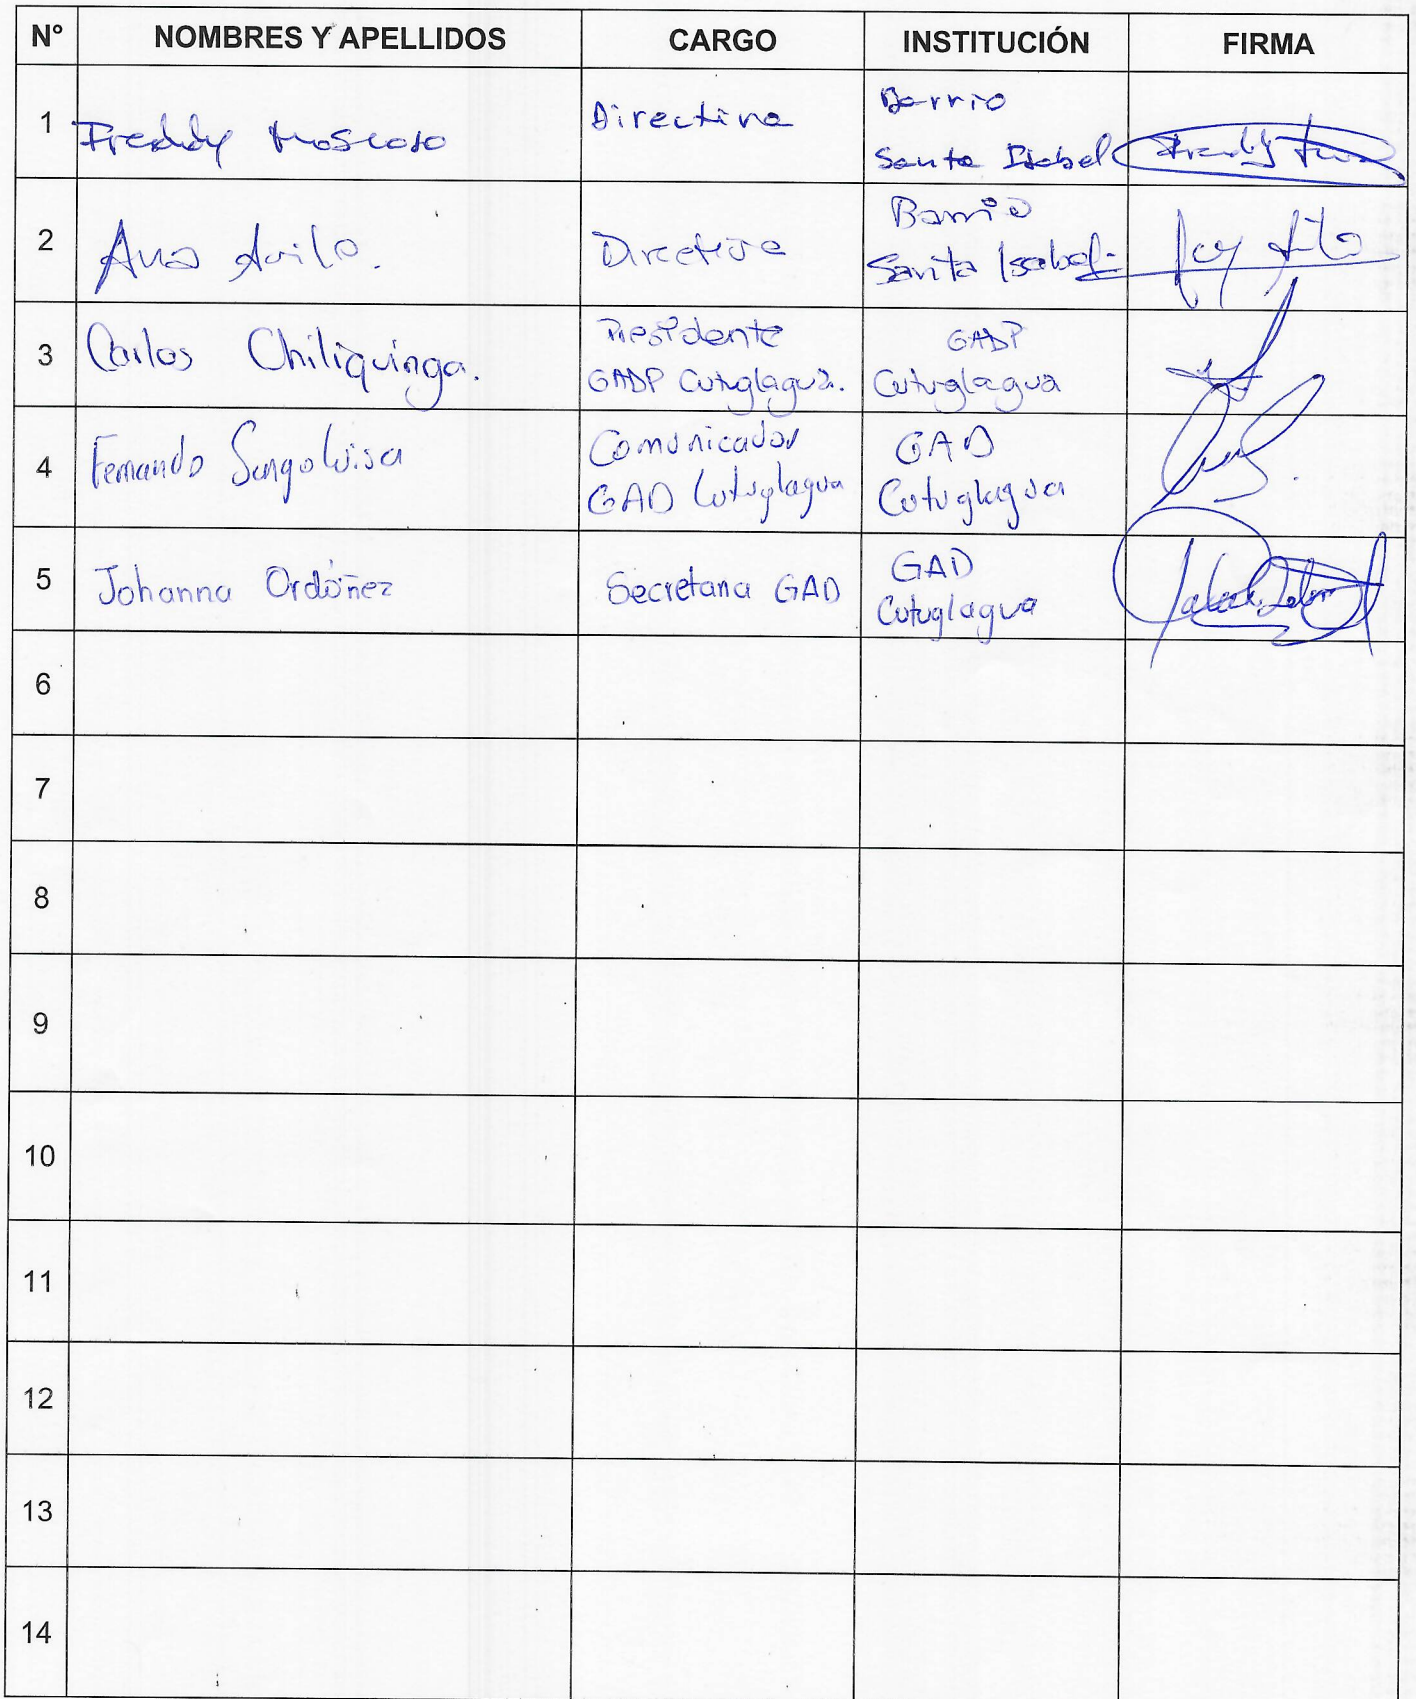 N° NOMBRES Y APELLIDOS CARGO INSTITUCIÓN FIRMA
1 Freddy Moscoso Directiva Barrio
Santa Isabel
2 Ana Avila. Directiva Barrio
Santa Isabel
3 Carlos Chiliquinga. Presidente GADP
GADP Cutuglagua. Cutuglagua
4 Fernando Sangoluisa Comunicador GAD
GAD Cutuglagua Cutuglagua
5 Johanna Ordóñez Secretaria GAD GAD
Cutuglagua
6
7
8
9
10
11
12
13
14